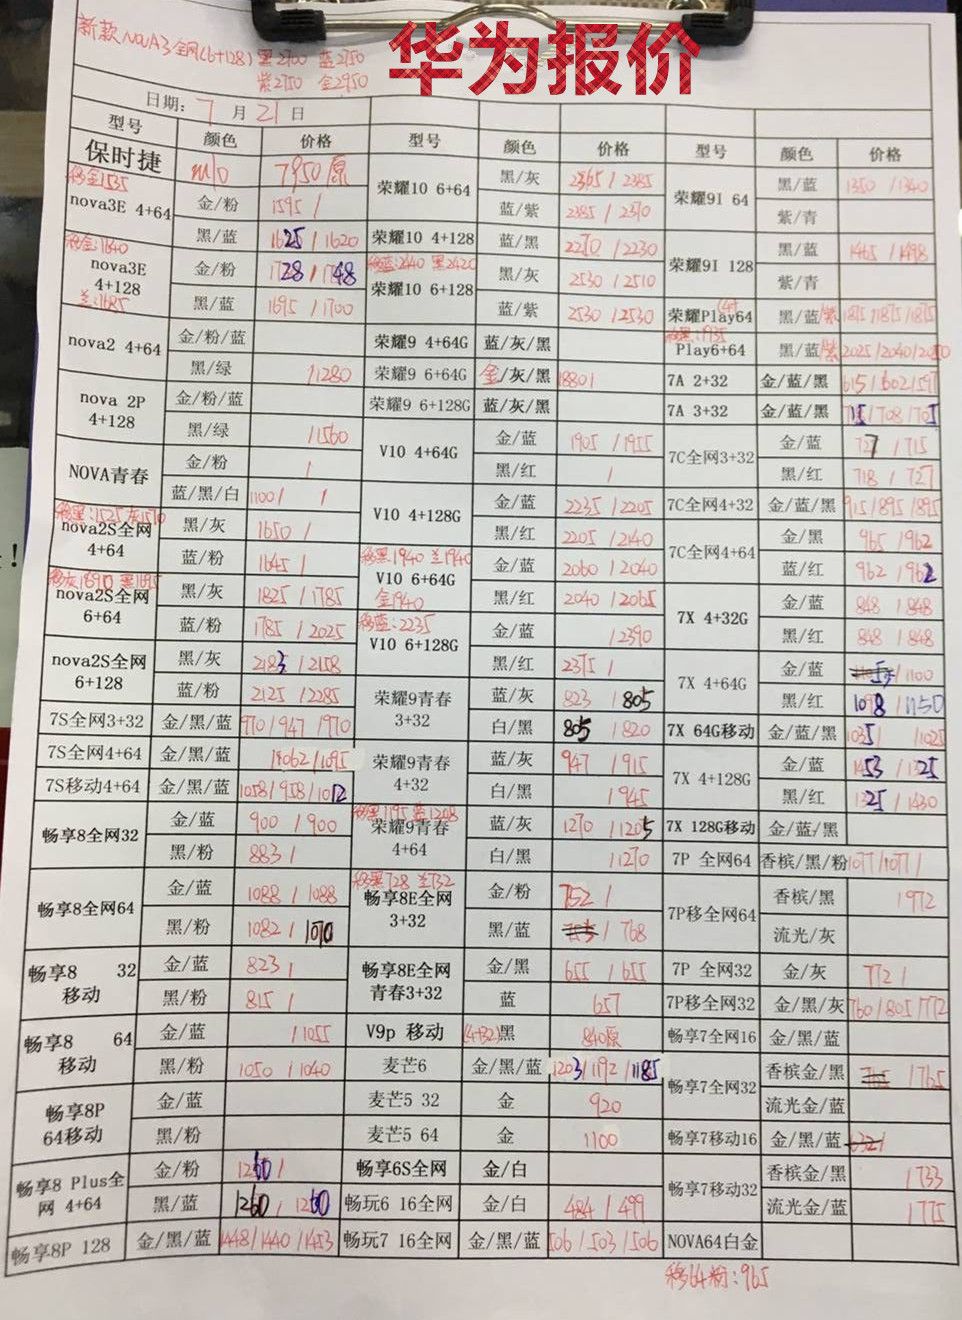 华为报价
新款NOVA3全网(6+128)黑2700 蓝2750
紫2750 金2950
日期: 7 月 21 日
型号 颜色 价格 型号 颜色 价格 型号 颜色 价格
保时捷 7950原
移金1535
nova3E 4+64 金/粉 1595/
黑/蓝 1625/1620
移金:1640
nova3E 4+128 金/粉 1728/1748
黑/蓝 1695/1700
兰:1685
nova2 4+64 金/粉/蓝
黑/绿 /1280
nova 2P 4+128 金/粉/蓝
黑/绿 /1560
NOVA青春 金/粉 /
蓝/黑/白 1100/ /
移黑:1525 灰1510
nova2S全网 4+64 黑/灰 1650/
蓝/粉 1645/
nova2S全网 6+64 黑/灰 1825/1785
蓝/粉 1785/2025
nova2S全网 6+128 黑/灰 2183/2158
蓝/粉 2125/2285
7S全网3+32 金/黑/蓝 970/947/970
7S全网4+64 金/黑/蓝 /1095
7S移动4+64 金/黑/蓝 1058/958/1012
畅享8全网32 金/蓝 900/900
黑/粉 883/
畅享8全网64 金/蓝 1088/1088
黑/粉 1082/1070
畅享8 32 移动 金/蓝 823/
黑/粉 815/
畅享8 64 移动 金/蓝 /1055
黑/粉 1050/1040
畅享8P 64移动 金/蓝
黑/粉
畅享8 Plus全网 4+64 金/粉 1260/
黑/蓝 1260/1260
畅享8P 128 金/黑/蓝 1448/1440/1453
荣耀10 6+64 黑/灰 2365/2385
蓝/紫 2385/2370
荣耀10 4+128 蓝/黑 2210/2230
移蓝:2440 黑2420
荣耀10 6+128 黑/灰 2530/2510
蓝/紫 2530/2530
荣耀9 4+64G 蓝/灰/黑
荣耀9 6+64G 金/灰/黑 1880/
荣耀9 6+128G 蓝/灰/黑
V10 4+64G 金/蓝 1905/1955
黑/红 /
V10 4+128G 金/蓝 2235/2205
黑/红 2205/2140
移黑:1940 兰1940
V10 6+64G 金/蓝 2060/2040
金1940
黑/红 2040/2065
移蓝:2235
V10 6+128G 金/蓝 /2390
黑/红 2375/
荣耀9青春 3+32 蓝/灰 823/805
白/黑 805/820
荣耀9青春 4+32 蓝/灰 947/915
白/黑 /945
移黑1195 蓝1208
荣耀9青春 4+64 蓝/灰 1270/1205
白/黑 /1270
移黑728 兰732
畅享8E全网 3+32 金/粉 752/
黑/蓝 /768
畅享8E全网 青春3+32 金/黑 655/655
蓝 657
V9p 移动 (4+32)黑 840原
麦芒6 金/黑/蓝 1203/1192/1185
麦芒5 32 金 920
麦芒5 64 金 1100
畅享6S全网 金/白
畅玩6 16全网 金/白 484/499
畅玩7 16全网 金/黑/蓝 506/503/506
荣耀9I 64 黑/蓝 1350/1340
紫/青
荣耀9I 128 黑/蓝 1465/1498
紫/青
荣耀Play64 黑/蓝/紫 1815/1875/1875
移黑:1935
Play6+64 黑/蓝/紫 2025/2040/2050
7A 2+32 金/蓝/黑 615/602/597
7A 3+32 金/蓝/黑 715/708/705
7C全网3+32 金/蓝 727/715
黑/红 718/727
7C全网4+32 金/蓝/黑 915/895/895
7C全网4+64 金/黑 965/962
蓝/红 962/962
7X 4+32G 金/蓝 848/848
黑/红 848/848
7X 4+64G 金/蓝 /1100
黑/红 1098/1150
7X 64G移动 金/蓝/黑 1035/ /1025
7X 4+128G 金/蓝 1453/1325
黑/红 1325/1430
7X 128G移动 金/蓝/黑
7P 全网64 香槟/黑/粉 1077/1077/
7P移全网64 香槟/黑 /972
流光/灰
7P 全网32 金/灰 772/
7P移全网32 金/黑/灰 760/805/772
畅享7全网16 金/黑/蓝
畅享7全网32 香槟金/黑 765/765
流光金/蓝
畅享7移动16 金/黑/蓝 632/
畅享7移动32 香槟金/黑 /733
流光金/蓝 /775
NOVA64白金
移64粉:965